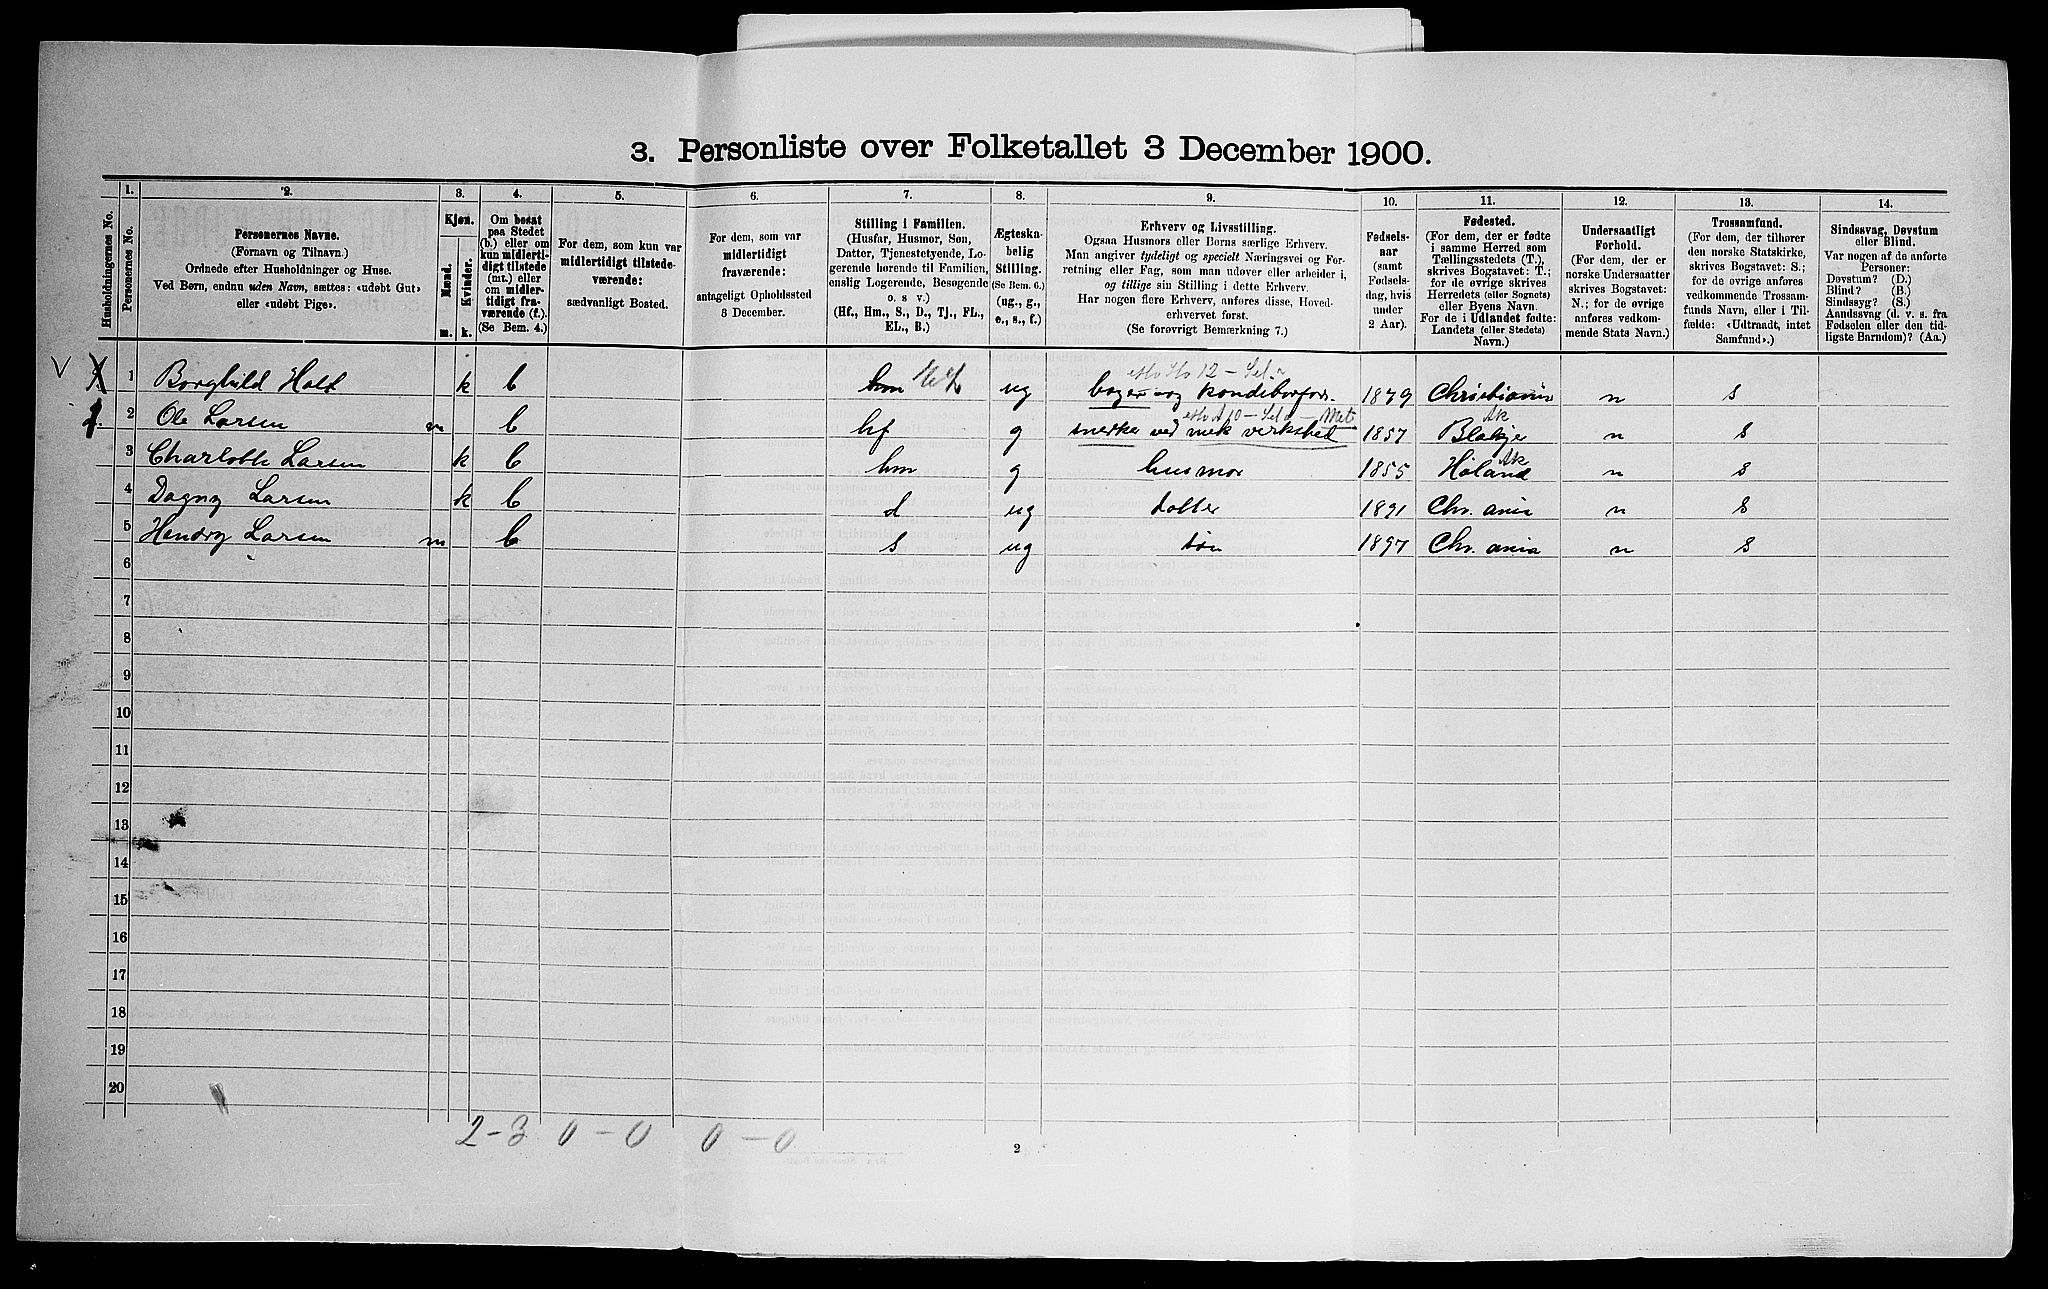 3. Personliste over Folketallet 3 December 1900.
1. 2. 3. 4. 5. 6. 7. 8. 9. 10. 11. 12. 13. 14.
Husholdningernes No.
Personernes No.
Personernes Navne.
(Fornavn og Tilnavn.)
Ordnede efter Husholdninger og Huse.
Ved Børn, endnu uden Navn, sættes: «udøbt Gut»
eller «udøbt Pige».
Kjøn.
Mænd.
Kvinder.
m. k.
Om bosat
paa Stedet
(b.) eller om
kun midlerti-
digt tilstede
(mt.) eller
om midler-
tidigt fra-
værende (f.).
(Se Bem. 4.)
For dem, som kun var
midlertidigt tilstede-
værende:
sædvanligt Bosted.
For dem, som var
midlertidigt
fraværende:
antageligt Opholdssted
3 December.
Stilling i Familien.
(Husfar, Husmor, Søn,
Datter, Tjenestetyende, Lo-
gerende hørende til Familien,
enslig Logerende, Besøgende
o. s v.)
(Hf., Hm., S., D., Tj., FL.,
EL., B.)
Ægteska-
belig
Stilling.
(Se Bem. 6.)
(ug., g.,
e., s., f.)
Erhverv og Livsstilling.
Ogsaa Husmors eller Børns særlige Erhverv.
Man angiver tydeligt og specielt Næringsvei og For-
retning eller Fag, som man udøver eller arbeider i,
og tillige sin Stilling i dette Erhverv.
Har nogen flere Erhverv, anføres disse, Hoved-
erhvervet først.
(Se forøvrigt Bemærkning 7.)
Fødsels-
aar
(samt
Fødsels-
dag, hvis
under
2 Aar).
Fødested.
(For dem, der er fødte
i samme Herred som
Tællingsstedets (T.),
skrives Bogstavet: T.;
for de øvrige skrives
Herredets (eller Sognets)
eller Byens Navn.
For de i Udlandet fødte:
Landets (eller Stedets)
Navn.)
Undersaatligt
Forhold.
(For dem, der er
norske Undersaatter
skrives Bogstavet:
N.; for de øvrige
anføres vedkom-
mende Stats Navn.)
Trossamfund.
(For dem, der tilhører
den norske Statskirke,
skrives Bogstavet: S.;
for de øvrige anføres
vedkommende Trossam-
funds Navn, eller i Til-
fælde: «Udtraadt, intet
Samfund».)
Sindssvag, Døvstum
eller Blind.
Var nogen af de anførte
Personer:
Døvstum? (D.)
Blind? (B.)
Sindssyg? (S.)
Aandssvag (d. v. s. fra
Fødselen eller den tid-
ligste Barndom)? (Aa.)
1 Borghild Holt k b hm ug bager og 1879 Christiania n s
2 Ole Larsen m b hf g ved mek verksted 1857 Blakjer Ak n s
3 Charlotte Larsen k b hm g husmor 1855 Høland Ak n s
4 Dagny Larsen k b d ug dotter 1891 Chr. ania n s
5 Hendry Larsen m b s ug søn 1897 Chr. ania n s
6
7
8
9
10
11
12
13
14
15
16
17
18
19
20
2-3 0-0 0-0
2